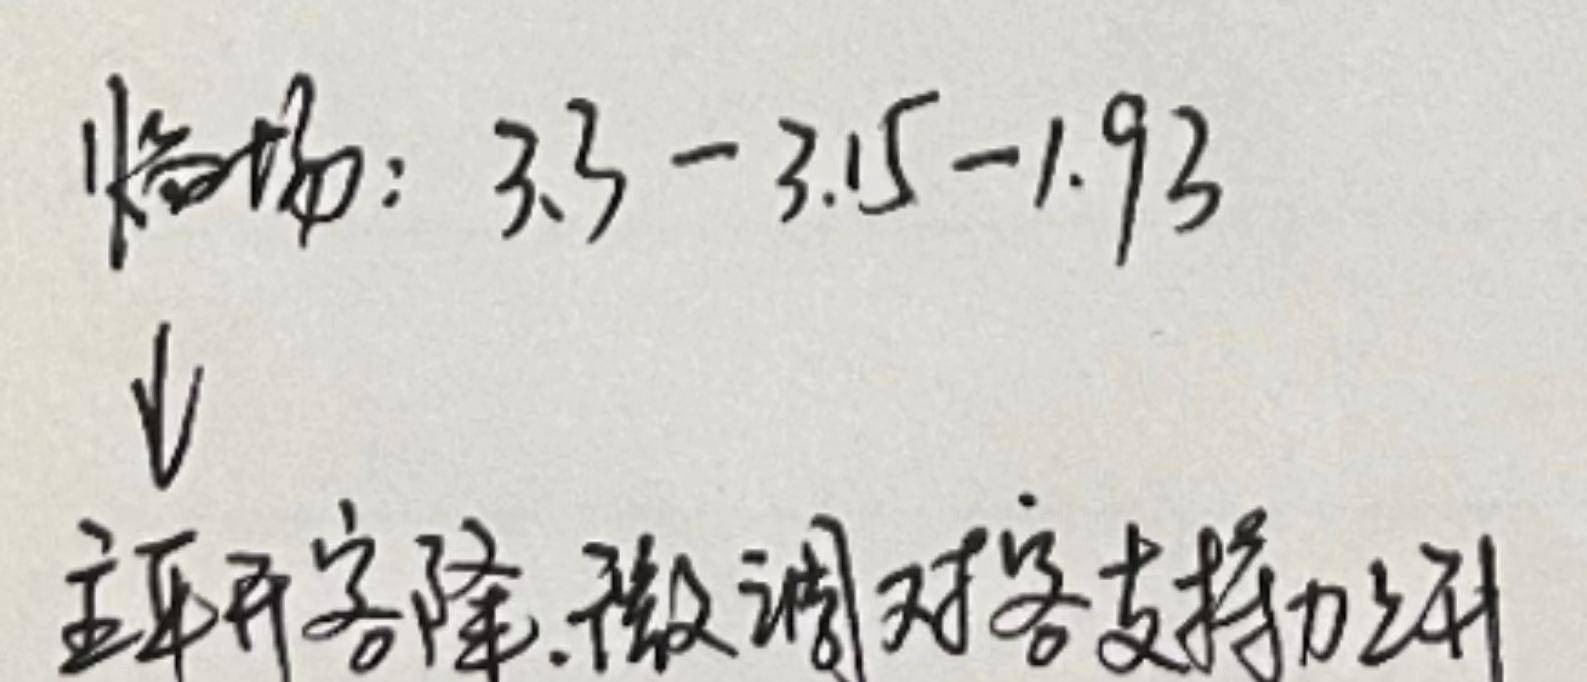 临场: 3.3-3.15-1.93
↓
主平升客降.微调对客支持力上升